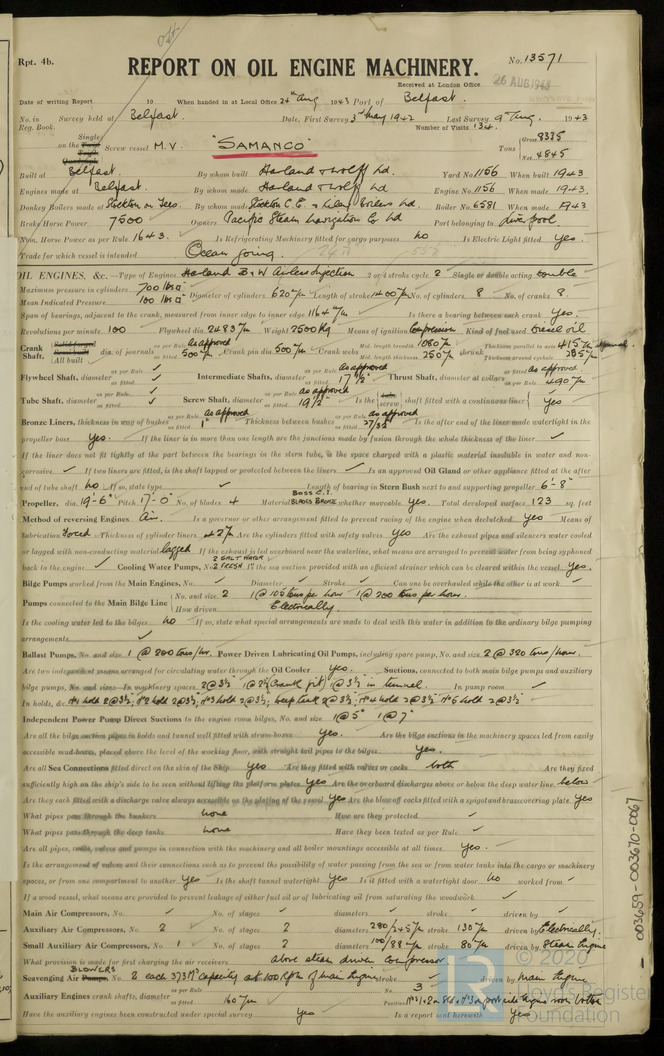 Rpt. 4b.
No. 13571
REPORT ON OIL ENGINE MACHINERY.
Received at London Office 26 AUG 1943
Date of writing Report 19 When handed in at Local Office 24th Aug 1943 Port of Belfast.
No. in Reg. Book. Survey held at Belfast. Date, First Survey 3rd May 1942 Last Survey 9th Aug. 1943
Number of Visits 134.
Single on the Screw vessel M.V. "SAMANCO" Tons Gross 8335 Net 4845
Built at Belfast. By whom built Harland & Wolff Ld. Yard No. 1156 When built 1943
Engines made at Belfast. By whom made Harland & Wolff Ld Engine No. 1156 When made 1943.
Donkey Boilers made at Stockton on Tees. By whom made Stockton C.E. & Riley Boilers Ld Boiler No. 6581 When made 1943
Brake Horse Power 7500 Owners Pacific Steam Navigation Co Ld Port belonging to Liverpool
Nom. Horse Power as per Rule 1643. Is Refrigerating Machinery fitted for cargo purposes No Is Electric Light fitted Yes.
Trade for which vessel is intended Ocean going.
OIL ENGINES, &c.—Type of Engines Harland B & W Airless Injection 2 or 4 stroke cycle 2 Single or double acting Double
Maximum pressure in cylinders 700 lbs □" Diameter of cylinders 620 m/m Length of stroke 1400 m/m No. of cylinders 8 No. of cranks 8.
Mean Indicated Pressure 100 lbs □"
Span of bearings, adjacent to the crank, measured from inner edge to inner edge 1164 m/m Is there a bearing between each crank Yes.
Revolutions per minute 100 Flywheel dia. 2483 m/m Weight 2500 Kg Means of ignition Compression Kind of fuel used Diesel oil
Crank Shaft, All built dia. of journals as per Rule As approved as fitted 500 m/m Crank pin dia 500 m/m Crank webs Mid. length breadth 1080 m/m Mid. length thickness 250 m/m shrunk Thickness parallel to axis 415 m/m Thickness around eyehole 285 m/m
Flywheel Shaft, diameter as per Rule ✓ as fitted ✓ Intermediate Shafts, diameter as per Rule As approved as fitted 17½" Thrust Shaft, diameter at collars as per Rule As approved as fitted 490 m/m
Tube Shaft, diameter as per Rule ✓ as fitted ✓ Screw Shaft, diameter as per Rule As approved as fitted 19½" Is the screw shaft fitted with a continuous liner Yes
Bronze Liners, thickness in way of bushes as per Rule As approved as fitted 1" Thickness between bushes as per Rule As approved as fitted 27/32" Is the after end of the liner made watertight in the
propeller boss Yes. If the liner is in more than one length are the junctions made by fusion through the whole thickness of the liner ✓
If the liner does not fit tightly at the part between the bearings in the stern tube, is the space charged with a plastic material insoluble in water and non-
corrosive. ✓ If two liners are fitted, is the shaft lapped or protected between the liners ✓ Is an approved Oil Gland or other appliance fitted at the after
end of tube shaft No If so, state type ✓ Length of bearing in Stern Bush next to and supporting propeller 6'-8"
Propeller, dia. 19'-6" Pitch 17'-0" No. of blades 4 Material BOSS C.I. BLADES BRONZE whether moveable Yes. Total developed surface 123 sq. feet
Method of reversing Engines Air. Is a governor or other arrangement fitted to prevent racing of the engine when declutched Yes Means of
lubrication Forced Thickness of cylinder liners 42 m/m Are the cylinders fitted with safety valves Yes Are the exhaust pipes and silencers water cooled
or lagged with non-conducting material lagged If the exhaust is led overboard near the waterline, what means are arranged to prevent water from being syphoned
back to the engine ✓ Cooling Water Pumps, No. 2 SALT WATER 2 FRESH Is the sea suction provided with an efficient strainer which can be cleared within the vessel Yes.
Bilge Pumps worked from the Main Engines, No. ✓ Diameter ✓ Stroke ✓ Can one be overhauled while the other is at work ✓
Pumps connected to the Main Bilge Line No. and size 2 1 @ 100 tons per hour 1 @ 200 tons per hour.
How driven Electrically.
Is the cooling water led to the bilges No If so, what special arrangements are made to deal with this water in addition to the ordinary bilge pumping
arrangements ✓
Ballast Pumps, No. and size 1 @ 200 tons/hr. Power Driven Lubricating Oil Pumps, including spare pump, No. and size 2 @ 320 tons/hour.
Are two independent means arranged for circulating water through the Oil Cooler Yes. Suctions, connected to both main bilge pumps and auxiliary
bilge pumps, No. and size: In machinery spaces 2@3½" 1@2½" (Crank pit) 1@3½" in tunnel. In pump room ✓
In holds, &c. No 1 hold 2@3½", No 2 hold 2@3½", No 3 hold 2@3½", Deep tank 2@3½", No 4 hold 2@3½" No 5 hold 2@3½"
Independent Power Pump Direct Suctions to the engine room bilges, No. and size 1@5" 1@7"
Are all the bilge suction pipes in holds and tunnel well fitted with strum-boxes Yes. Are the bilge suctions in the machinery spaces led from easily
accessible mud-boxes, placed above the level of the working floor, with straight tail pipes to the bilges Yes.
Are all Sea Connections fitted direct on the skin of the ship Yes Are they fitted with valves or cocks both Are they fixed
sufficiently high on the ship's side to be seen without lifting the platform plates Yes Are the overboard discharges above or below the deep water line below
Are they each fitted with a discharge valve always accessible on the plating of the vessel Yes Are the blow off cocks fitted with a spigot and brass covering plate Yes
What pipes pass through the bunkers None How are they protected ✓
What pipes pass through the deep tanks None Have they been tested as per Rule ✓
Are all pipes, cocks, valves and pumps in connection with the machinery and all boiler mountings accessible at all times. Yes.
Is the arrangement of valves and their connections such as to prevent the possibility of water passing from the sea or from water tanks into the cargo or machinery
spaces, or from one compartment to another Yes Is the shaft tunnel watertight Yes Is it fitted with a watertight door No worked from ✓
If a wood vessel, what means are provided to prevent leakage of either fuel oil or of lubricating oil from saturating the woodwork. ✓
Main Air Compressors, No. ✓ No. of stages ✓ diameters ✓ stroke ✓ driven by ✓
Auxiliary Air Compressors, No. 2 No. of stages 2 diameters 280/245 m/m stroke 130 m/m driven by Electrically.
Small Auxiliary Air Compressors, No. 1 No. of stages 2 diameters 100/88 m/m stroke 80 m/m driven by Steam Engine
What provision is made for first charging the air receivers above steam driven compressor
Scavenging Air BLOWERS No. 2 each 373 M³ capacity at 100 RPM of main engine stroke ✓ driven by Main Engine
Auxiliary Engines crank shafts, diameter as per Rule as fitted 160 m/m No. 3 Position
Have the auxiliary engines been constructed under special survey Yes Is a report sent herewith Yes
003659-003670-0067
© 2020
Lloyd's Register
Foundation